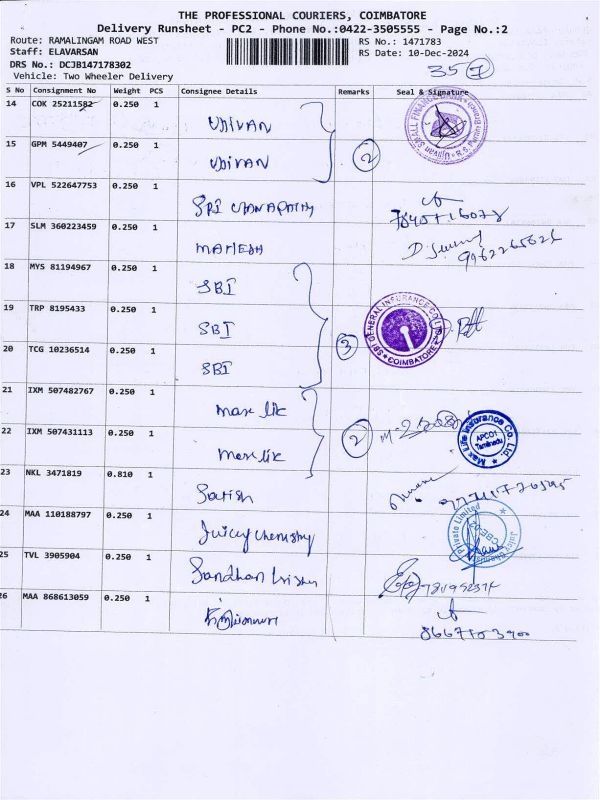 THE PROFESSIONAL COURIERS, COIMBATORE
Delivery Runsheet - PC2 - Phone No.:0422-3505555 - Page No.:2
Route: RAMALINGAM ROAD WEST RS No.: 1471783
Staff: ELAVARSAN RS Date: 10-Dec-2024
DRS No.: DCJB147178302
Vehicle: Two Wheeler Delivery
S No Consignment No Weight PCS Consignee Details Remarks Seal & Signature
14 COK 25211582 0.250 1
15 GPM 5449407 0.250 1 2
16 VPL 522647753 0.250 1 SRI
17 SLM 360223459 0.250 1 MAHESH
18 MYS 81194967 0.250 1 SBI
19 TRP 8195433 0.250 1 SBI
SBI GENERAL INSURANCE CO. LTD. COIMBATORE
20 TCG 10236514 0.250 1 SBI 3
21 IXM 507482767 0.250 1 max lic
22 IXM 507431113 0.250 1 max lic 2
Max Life Insurance Co. Ltd.
APCO1
Tamilnadu
23 NKL 3471819 0.810 1 Satish
24 MAA 110188797 0.250 1 Juicy Chemistry
25 TVL 3905904 0.250 1
26 MAA 868613059 0.250 1